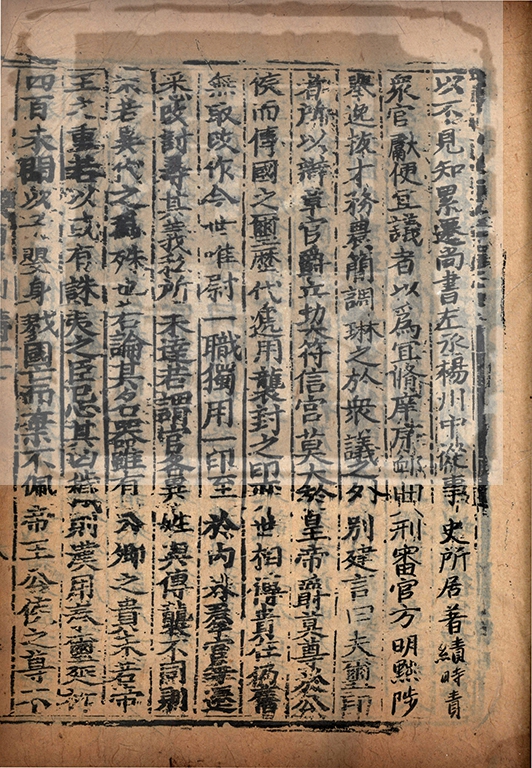 以不見知累遷尚書左丞楊川中從事史所居著績時責
衆官獻便宜議者以爲宜脩庠序卹典刑審官方明黜陟
舉逸拔才務農簡調琳之於衆議之外別建言曰夫璽印
者所以辯章官爵立契符信官莫大於皇帝爵莫尊於公
侯而傳國之璽歷代迭用襲封之印世相傳貴在仍舊
無取改作今世唯尉一職獨用一印至於內外羣官每遷
悉改討尋其義私所未達若謂官各異姓與傳襲不同則
未若異代之爲殊也若論其名器雖有公卿之貴未若帝
王之重若以或有誅夷之臣忌其凶穢則漢用秦璽延祚
四百未聞以子嬰身戮國亡而棄不佩帝王公侯之尊不